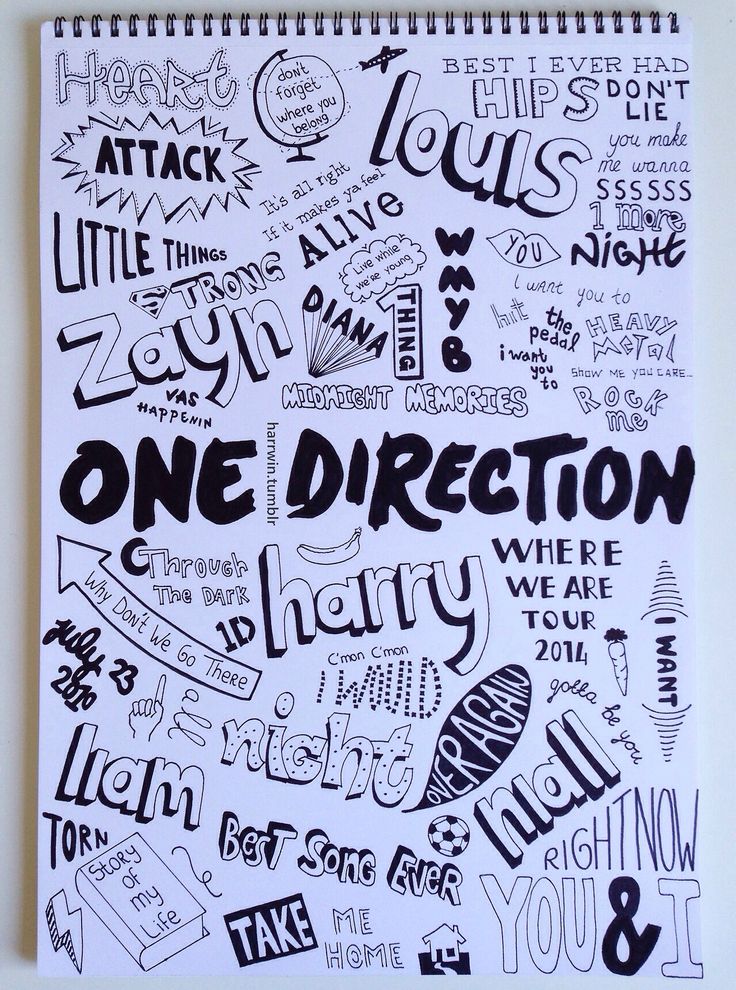 Heart
ATTACK
don't
forget
where you
belong
louis
BEST I EVER HAD
HIPS DON'T
LIE
you make
me wanna
SSSSSS
1 more
NIGHT
It's all right
If it makes ya feel
ALIVE
LITTLE THINGS
STRONG
Live while
we're young
W
M
Y
B
YOU
I want you to
hit the
pedal
HEAVY
METAL
i want
you
to
SHOW ME YOU CARE...
ROCK
me
Zayn
VAS
HAPPENIN
DIANA
1 THING
MIDNIGHT MEMORIES
ONE DIRECTION
harrwin.tumblr
Through
The Dark
Why Don't We Go There
1D
harry
WHERE
WE ARE
TOUR
2014
I WANT
July 23
2010
C'mon C'mon
I WOULD
gotta be you
all
night
OVER AGAIN
liam
niall
TORN
BEST SONG EVER
RIGHT NOW
Story
of
my
Life
TAKE ME
HOME
YOU & I